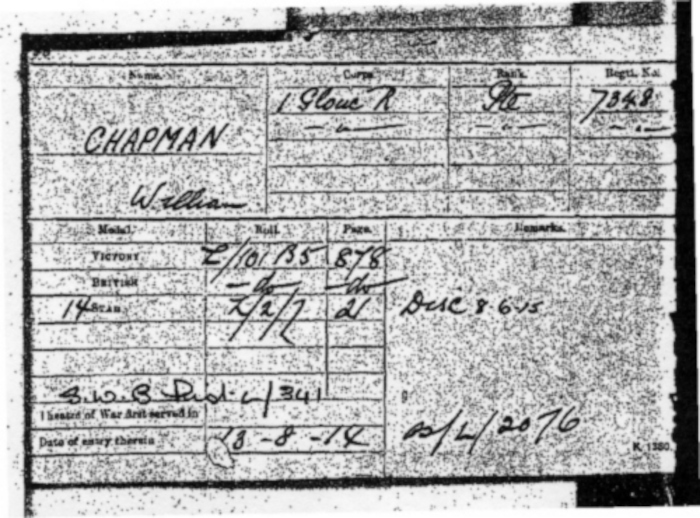 Name. Corps. Rank. Regtl. No.
1 Glouc R Pte 7348
— " — — " — — " —
CHAPMAN
William
Medal. Roll. Page. Remarks.
VICTORY L/101 B5 878
BRITISH — do — do —
14 STAR L/2/7 21 Disc 8 6 15
S.W.B L/341
Theatre of War first served in
Date of entry therein 13 - 8 - 14 /L/2076
K. 1380